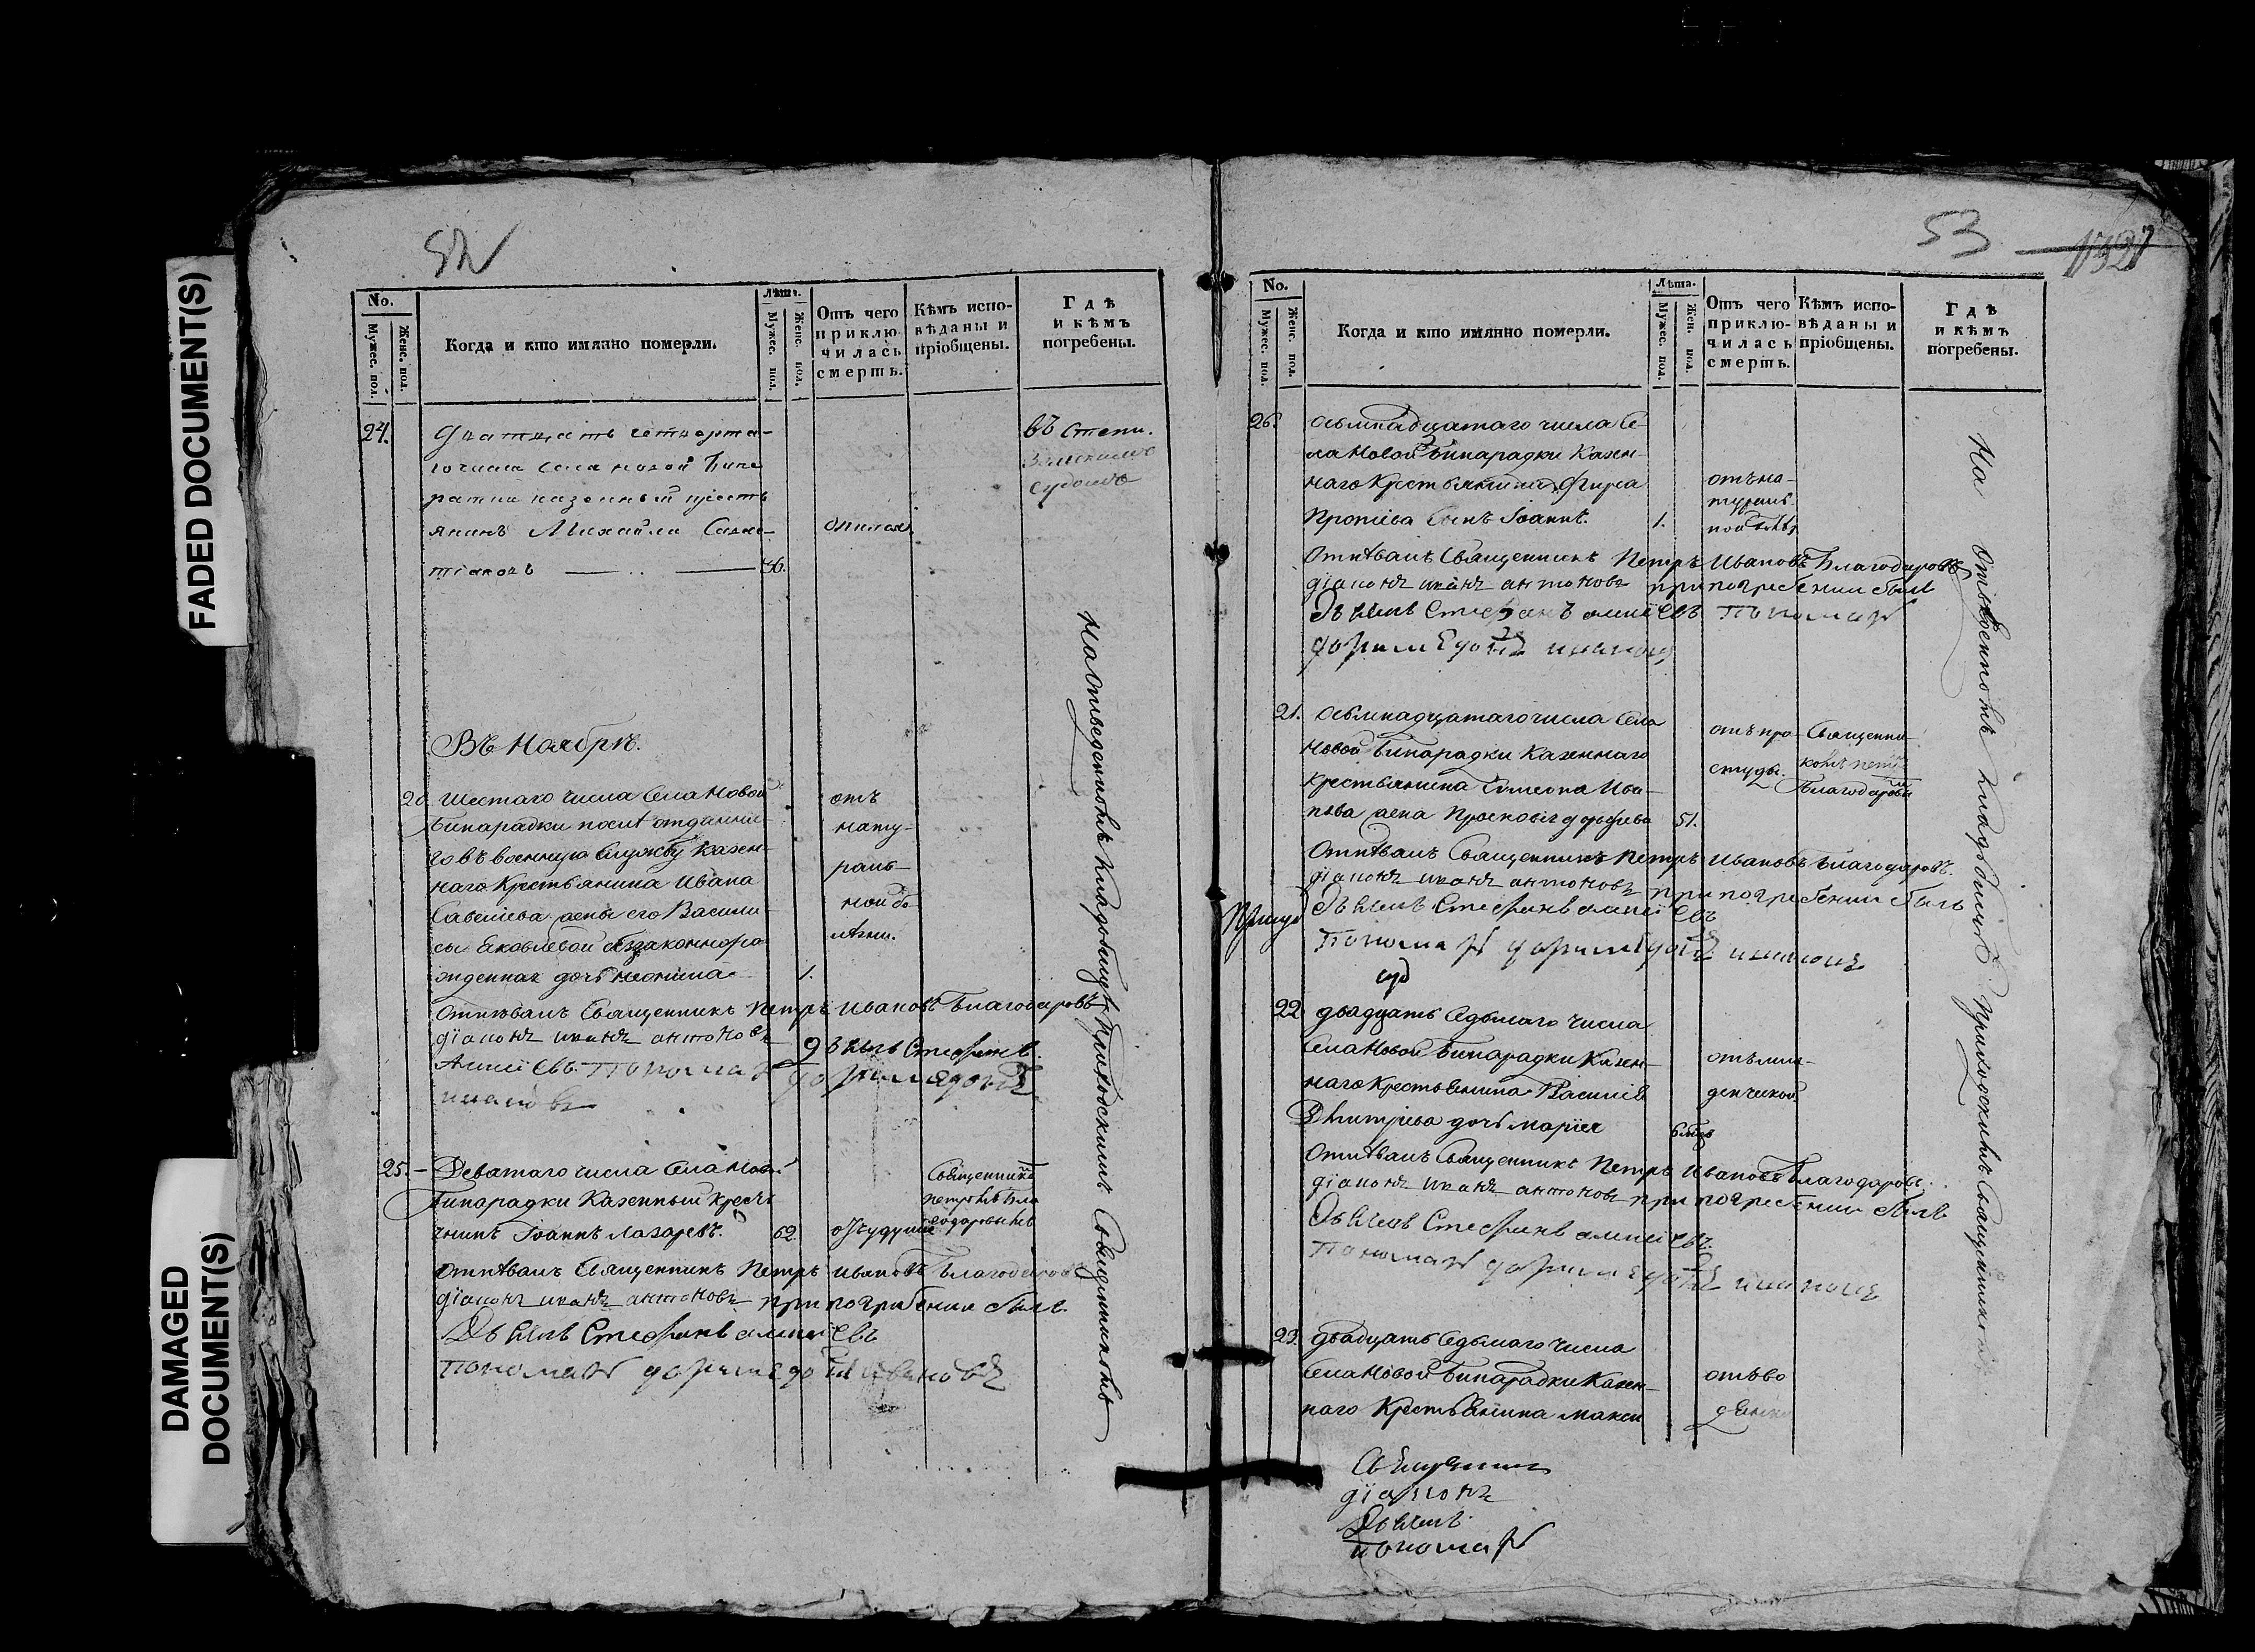 FADED DOCUMENT(S)
DAMAGED
DOCUMENT(S)
52
No.
Мужес. пол.
Женс. пол.
Когда и кто имянно померли.
Лѣта.
Мужес. пол.
Женс. пол.
Отъ чего
приклю
чилась
смерть.
Кѣмъ испо-
вѣданы и
пріобщены.
Гдѣ
и кѣмъ
погребены.
24.
Дватцать четверта-
го числа села новой Бина
ратки казенный крестъ
янинъ Михайла Савас-
тіановъ
36.
опился
въ степи.
Земскимъ
судомъ
Въ Ноябрѣ.
20
Шестаго числа села Новой
Бинарадки послѣ отданна
го въ военную службу казен-
наго крестьянина Ивана
Савелiева жены его Васили
сы Яковлевой беззаконноро
жденная дочь
1.
отъ
нату-
раль-
ной бо
лѣзни.
Отпѣвалъ Священникъ Петръ Ивановъ Благодаровъ
діаконъ иванъ антоновъ Дьячекъ Стефанъ
Алексіевъ Пономарь
ивановъ
25.
Девятаго числа села Новой
Бинарадки Казенный кресть
янинъ Іоаннъ Лазаревъ.
62
отъ удушья
Священникомъ
Петромъ Бла
годаровымъ
Отпѣвалъ Священникъ Петръ Ивановъ Благодаровъ
діаконъ иванъ антоновъ при погребении былъ
Дьячекъ Стефанъ алексіевъ
Пономарь ивановъ
На отведенномъ кладбищѣ Приходскимъ Священникомъ
53
1321
No.
Мужес. пол.
Женс. пол.
Когда и кто имянно померли.
Лѣта.
Мужес. пол.
Жен. пол.
Отъ чего
приклю-
чилась
смерть.
Кѣмъ испо-
вѣданы и
пріобщены.
Гдѣ
и кѣмъ
погребены.
26.
Осьмнадцатаго числа Се-
ла Новой Бинарадки Казен-
наго Крестьянина Фирса
сынъ Іоаннъ.
1.
отъ на-
тураль
ной
Отпѣвалъ Священникъ Петръ Ивановъ Благодаровъ
діаконъ иванъ антоновъ при погребении былъ
Дьячекъ Стефанъ алексіевъ Пономарь
ивановъ
21.
Осьмнадцатаго числа Села
Новой Бинарадки Казеннаго
Крестьянина Симеона Ива-
нова жена Просковія
51.
отъ про
студы.
Священни
комъ Петромъ
Благодаровымъ
Отпѣвалъ Священникъ Петръ Ивановъ Благодаровъ.
діаконъ иванъ антоновъ при погребении былъ
Дьячекъ Стефанъ алексіевъ
Пономарь ивановъ
22
двадцать Седьмаго Числа
Села Новой Бинарадки Казен-
наго Крестьянина Василія
Дмитріева дочь Марія
6 мцовъ
отъ мла-
денческой
Отпѣвалъ Священникъ Петръ Ивановъ Благодаровъ.
діаконъ иванъ антоновъ при погребении былъ
Дьячекъ Стефанъ алексіевъ
Пономарь ивановъ
23.
двадцать Седьмаго числа
Села Новой Бинарадки Казен-
наго Крестьянина Макси
отъ во
дянки
На отведенномъ кладбищѣ Приходскимъ Священникомъ
Священникъ
діаконъ
Дьячекъ
Пономарь